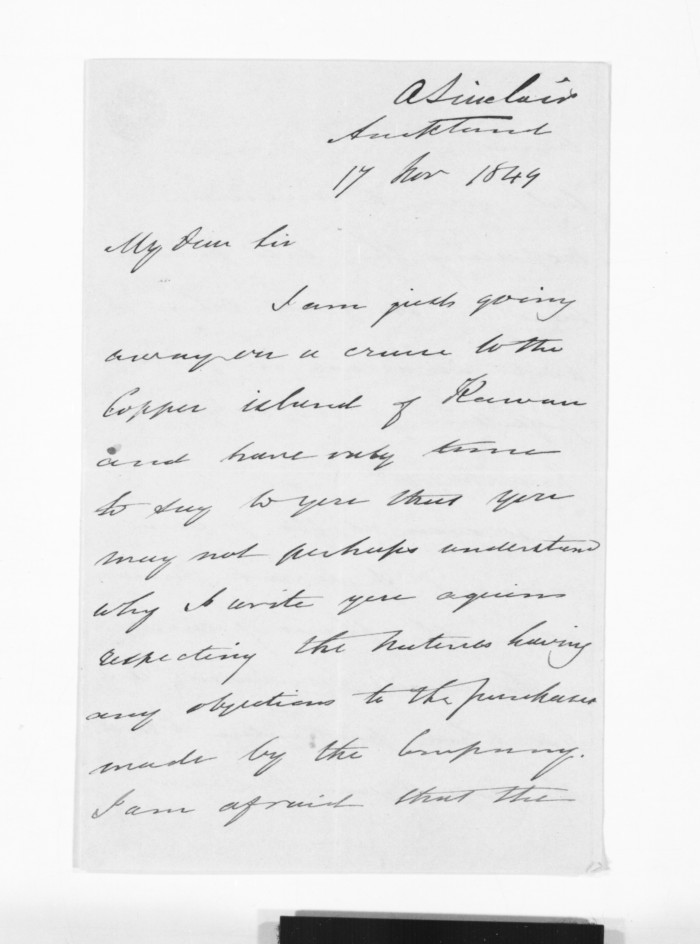 A Sinclair
Auckland
17 Nov 1849
My Dear Sir
I am just going
away on a cruise to the
Copper island of Kawau
and have only time
to say to you that you
may not perhaps understand
why I write you again
respecting the natives having
any objections to the purchases
made by the Company.
I am afraid that the
12